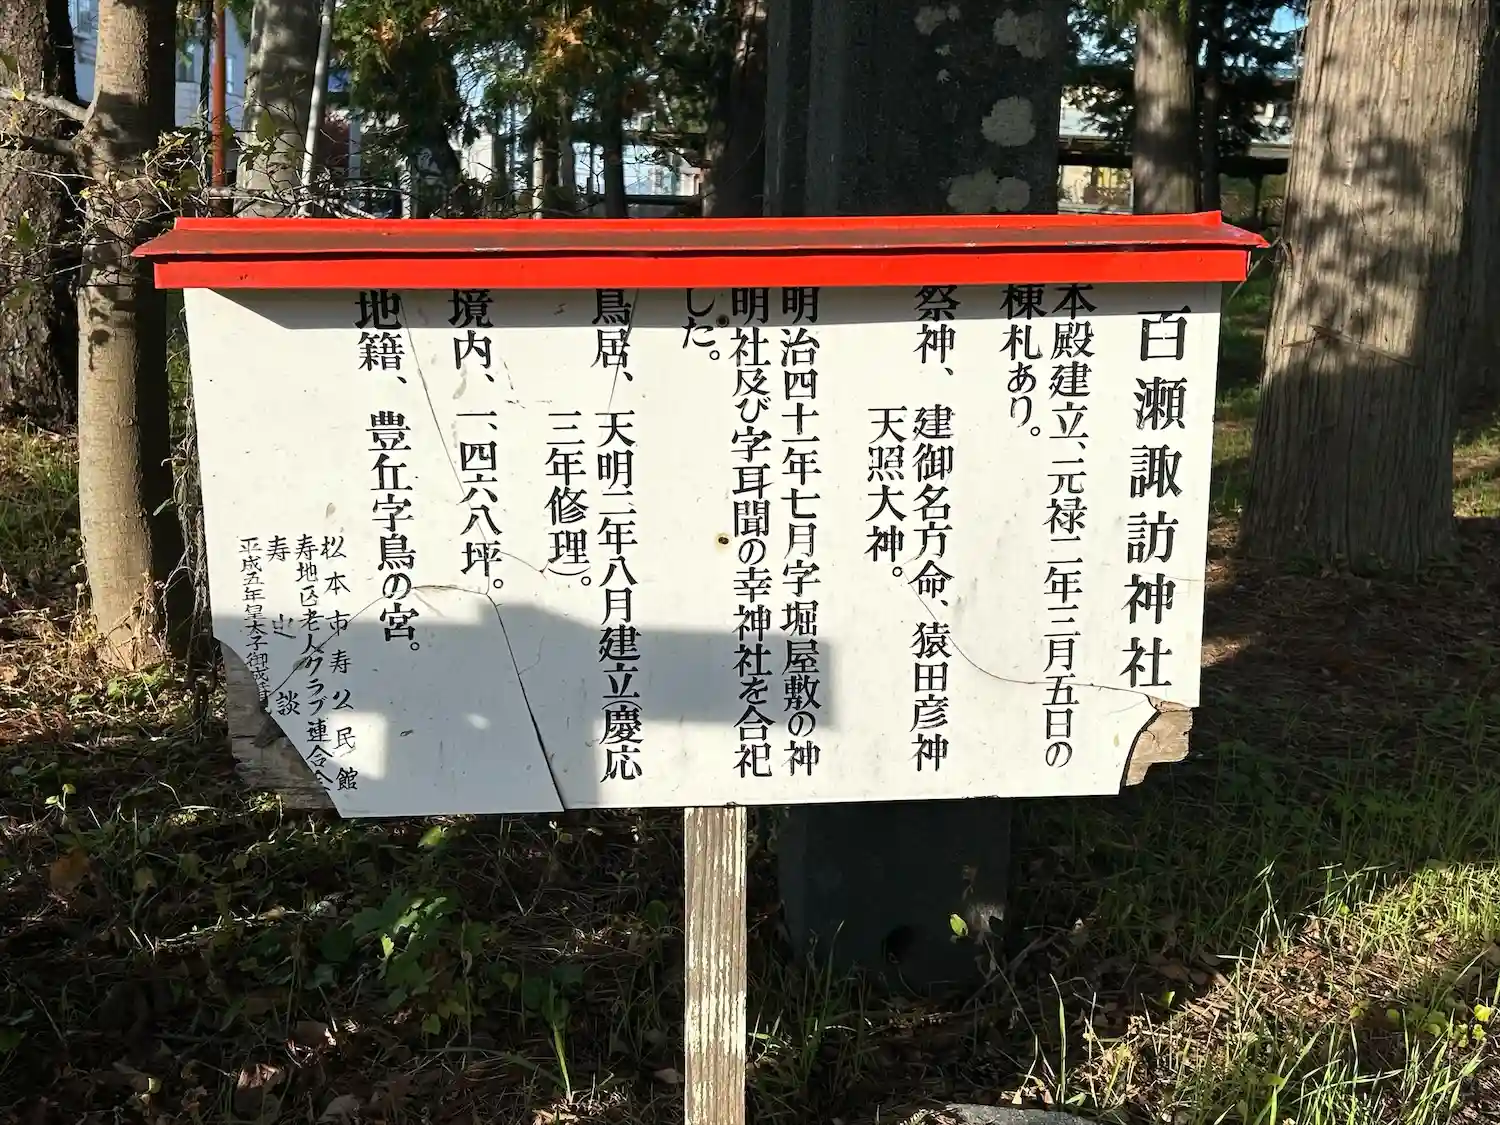 百瀬諏訪神社
本殿建立、元禄二年三月五日の
棟札あり。
祭神、建御名方命、猿田彦神
天照大神。
明治四十一年七月字堀屋敷の神
明社及び字耳聞の幸神社を合祀
した。
鳥居、天明二年八月建立(慶応
三年修理)。
境内、一、四六八坪。
地籍、豊丘字鳥の宮。
松本市寿公民館
寿地区老人クラブ連合会
寿山談
平成五年皇太子御成婚